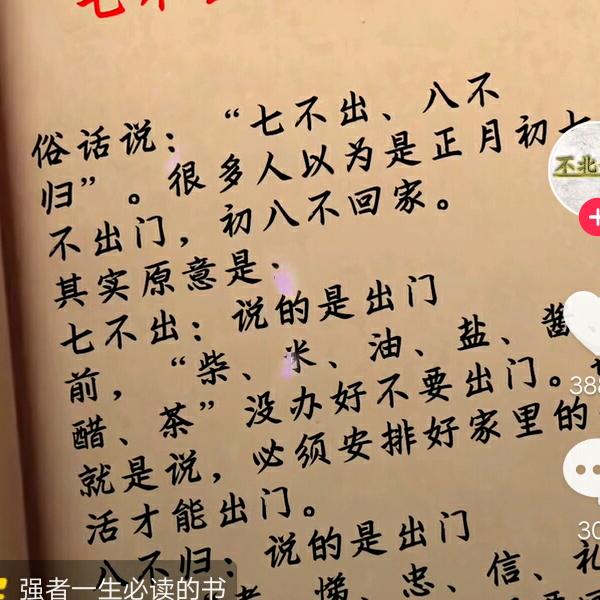 俗话说：“七不出、八不
归”。很多人以为是正月初七
不出门，初八不回家。
其实原意是：
七不出：说的是出门
前，“柴、米、油、盐、酱
醋、茶”没办好不要出门。
就是说，必须安排好家里的
活才能出门。
八不归：说的是出门
悌、忠、信、礼
不北
强者一生必读的书